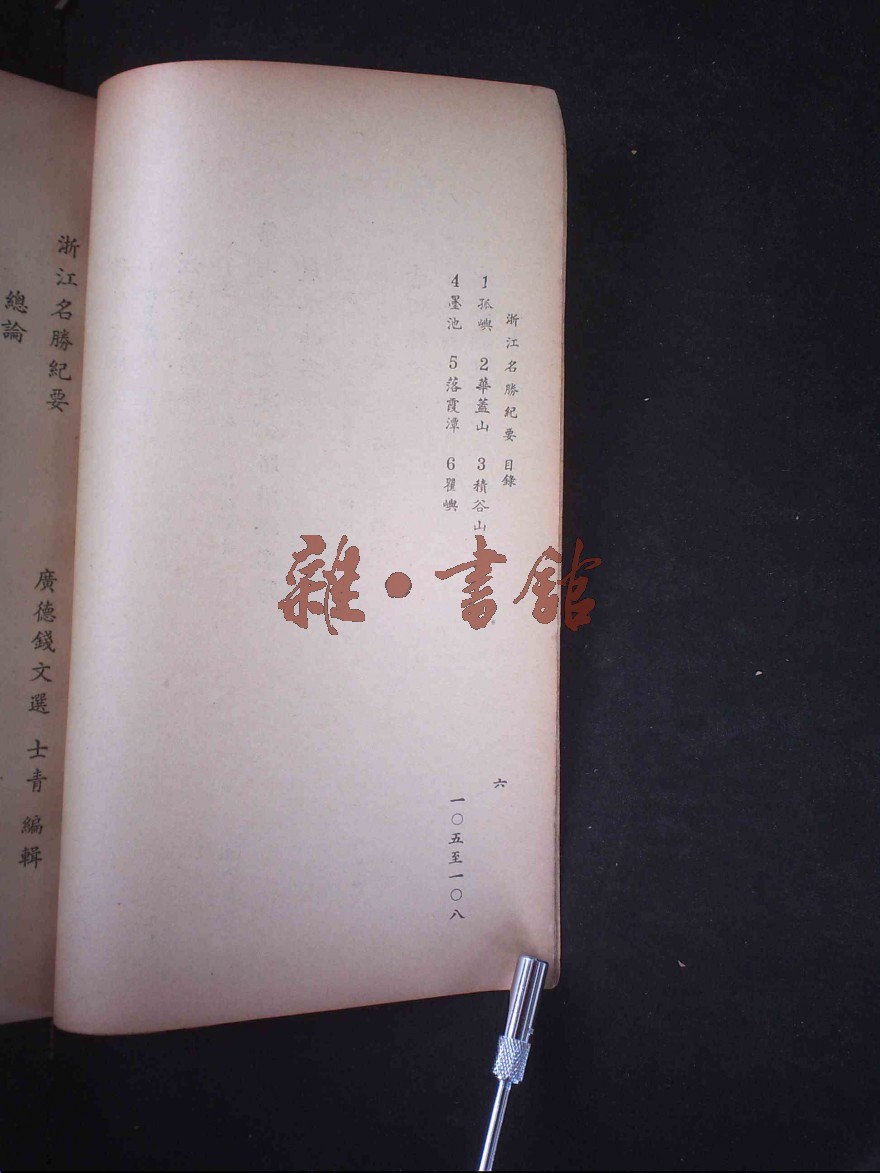 浙江名勝紀要 目錄
六
1 孤嶼 2 華蓋山 3 積谷山
4 墨池 5 落霞潭 6 瞿嶼
一〇五至一〇八
浙江名勝紀要
廣德錢文選 士青 編輯
總論
雜·書館